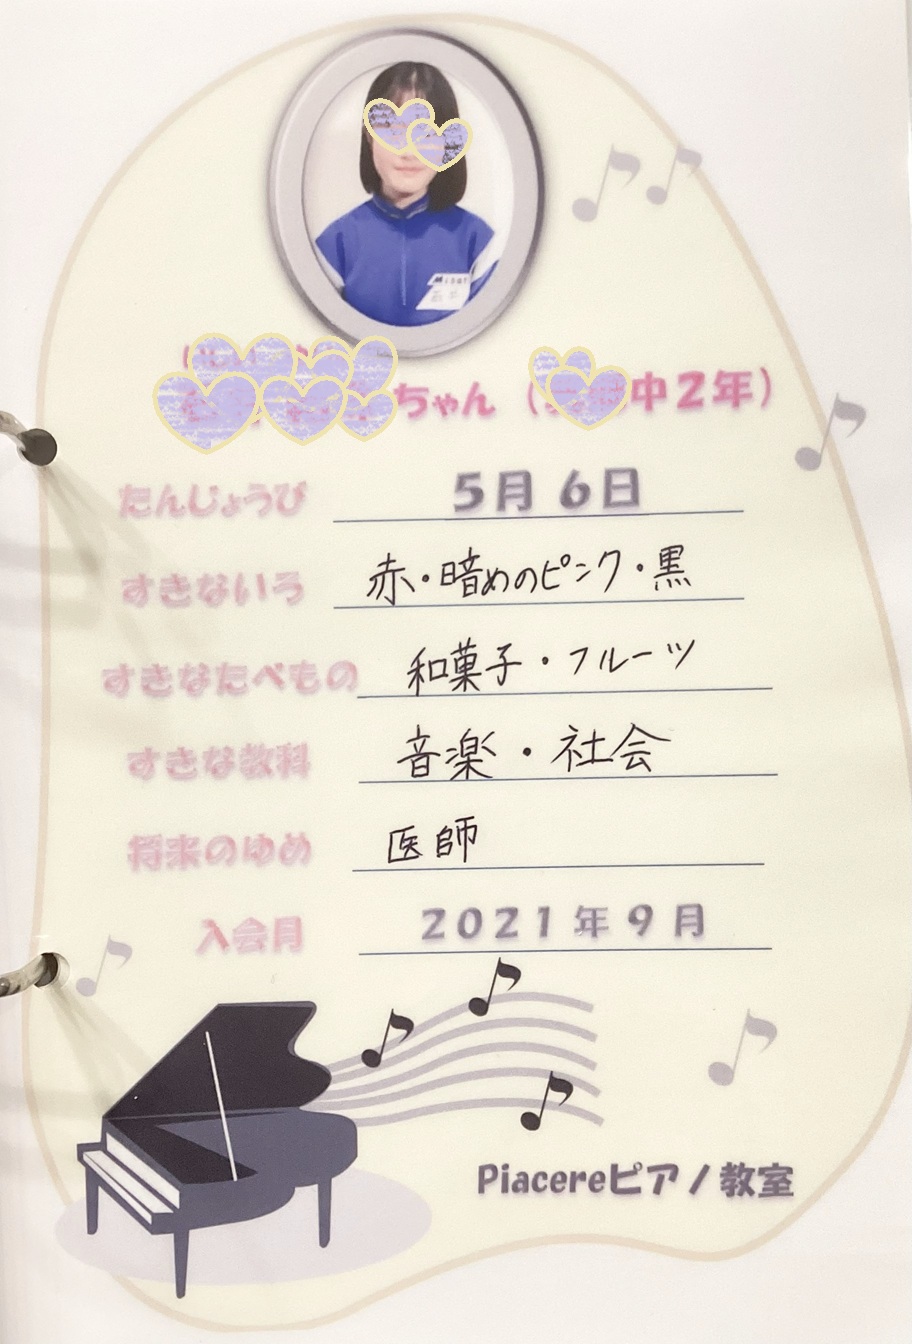 ちゃん（中２年）
たんじょうび 5月6日
すきないろ 赤・暗めのピンク・黒
すきなたべもの 和菓子・フルーツ
すきな教科 音楽・社会
将来のゆめ 医師
入会月 2021年9月
Piacereピアノ教室